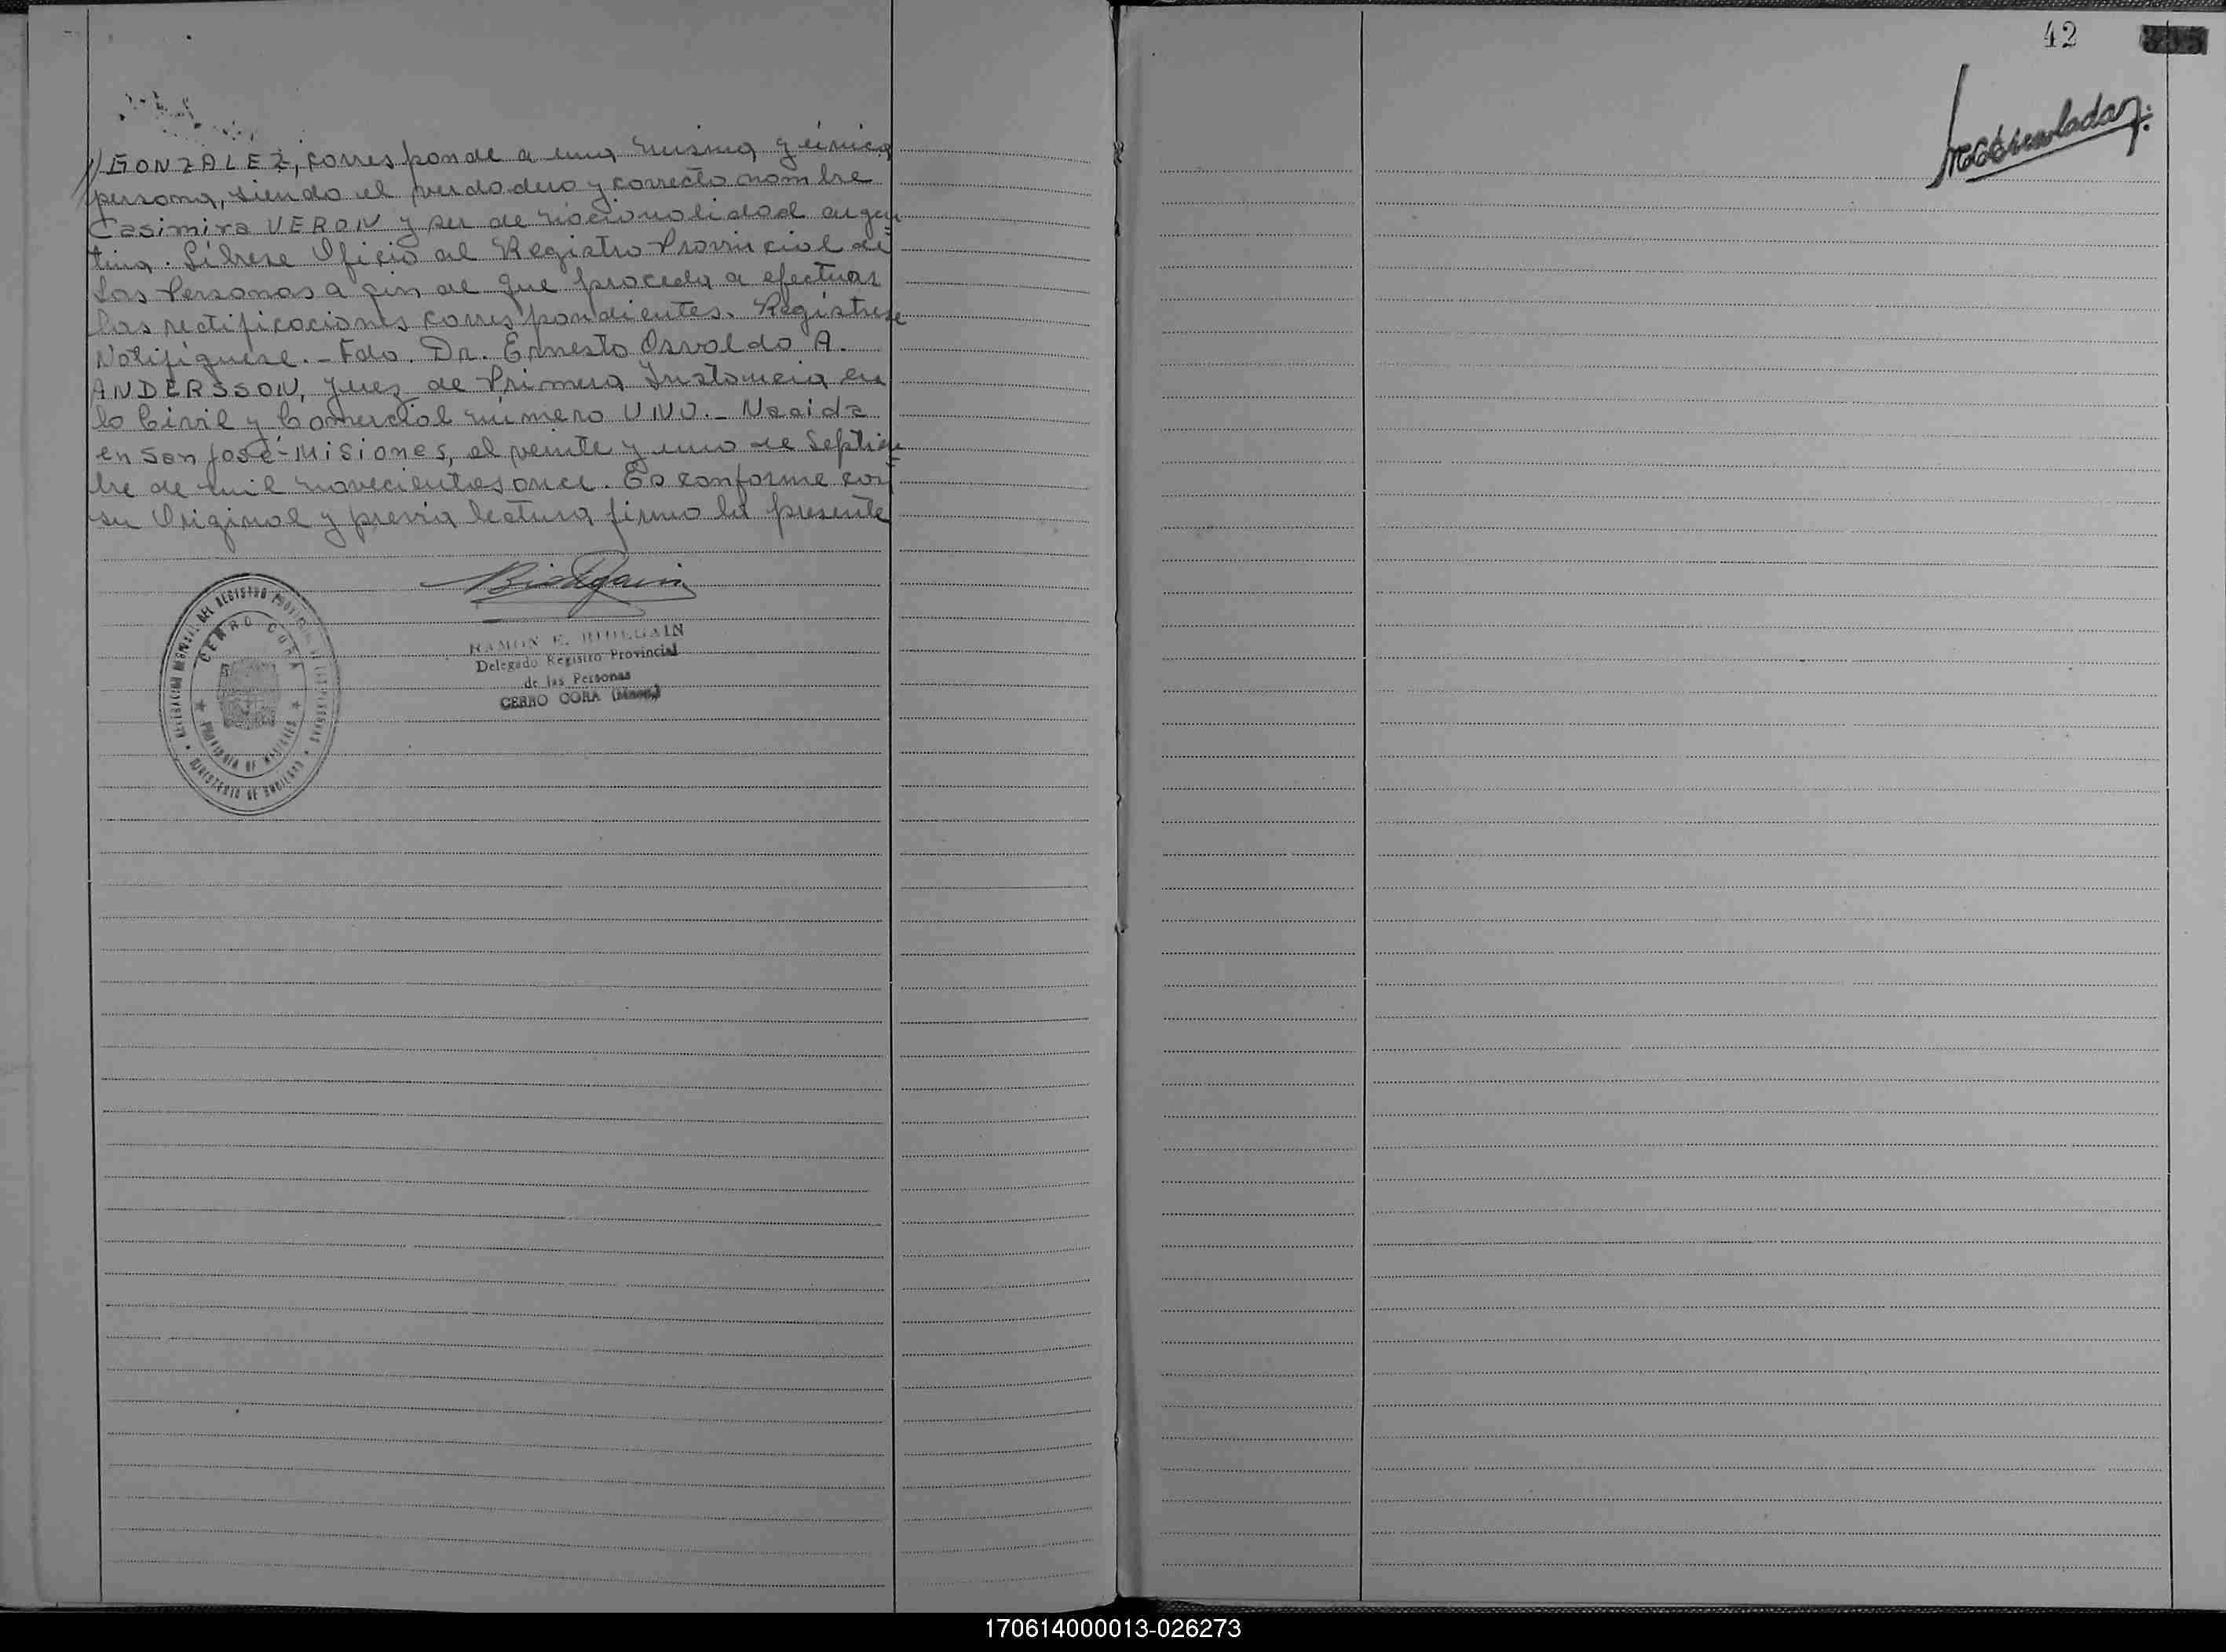 // GONZALEZ, corresponde a una misma y única
persona, siendo el verdadero y correcto nombre
Casimira VERON y ser de nacionalidad argen=
tina. Líbrese Oficio al Registro Provincial de
Las Personas a fin de que proceda a efectuar
las rectificaciones correspondientes. Regístrese
Notifíquese.- Fdo. Dr. Ernesto Osvaldo A.
ANDERSSON, Juez de Primera Instancia en
lo Civil y Comercial número UNO.- Nacida
en San José-Misiones, el veinte y uno de Septiem=
bre de mil novecientos once. Es conforme con
su Original y previa lectura firmo la presente
RAMON E. BIDEGAIN
Delegado Registro Provincial
de las Personas
CERRO CORA (Mnes.)
DELEGACION DEL REGISTRO PROVINCIAL DE LAS PERSONAS
CERRO CORA
PROVINCIA DE MISIONES
MINISTERIO DE GOBIERNO
42
335
170614000013-026273